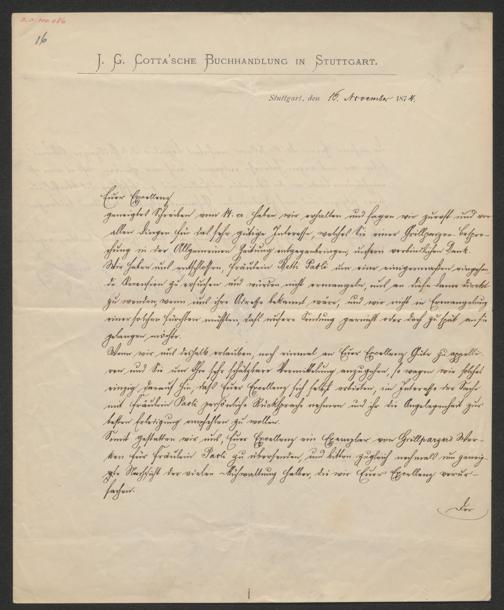 16
J. G. COTTA'SCHE BUCHHANDLUNG IN STUTTGART.
Stuttgart, den 16. November 1874.
Euer Excellenz
geneigtes Schreiben vom 14. a haben wir erhalten und sagen wir zuerst und vor
allen Dingen für das sehr gütige Interesse, welches Sie einer Grillparzer Bespre-
chung in der Allgemeinen Zeitung entgegenbringen, unsern verbindlichsten Dank.
Wir haben uns entschlossen, Fräulein Betti Paoli um eine einigermaßen eingehen-
de Recension zu ersuchen und würden nicht ermangeln, uns an diese Dame direkt
zu wenden, wenn uns ihre Adresse bekannt wäre, und wir nicht in Ermangelung
einer solchen fürchten müßten, daß unsere Sendung gar nicht oder doch zu spät an sie
gelangen möchte.
Wenn wir uns deshalb erlauben, noch einmal an Euer Excellenz Güte zu appelli-
ren, und Sie um Ihre sehr schätzbare Vermittelung anzugehen, so wagen wir solches
einzig darauf hin, daß Euer Excellenz sich selbst erbieten, im Interesse der Sache
mit Fräulein Paoli persönliche Rücksprache nehmen und ihr die Angelegenheit zur
besten Erledigung empfehlen zu wollen.
Somit gestatten wir uns, Euer Excellenz ein Exemplar von Grillparzers Wer-
ken für Fräulein Paoli zu übersenden, und bitten zugleich nochmals um geneig-
te Nachsicht der vielen Mühwaltung halber, die wir Euer Excellenz verur-
sachen.
Der